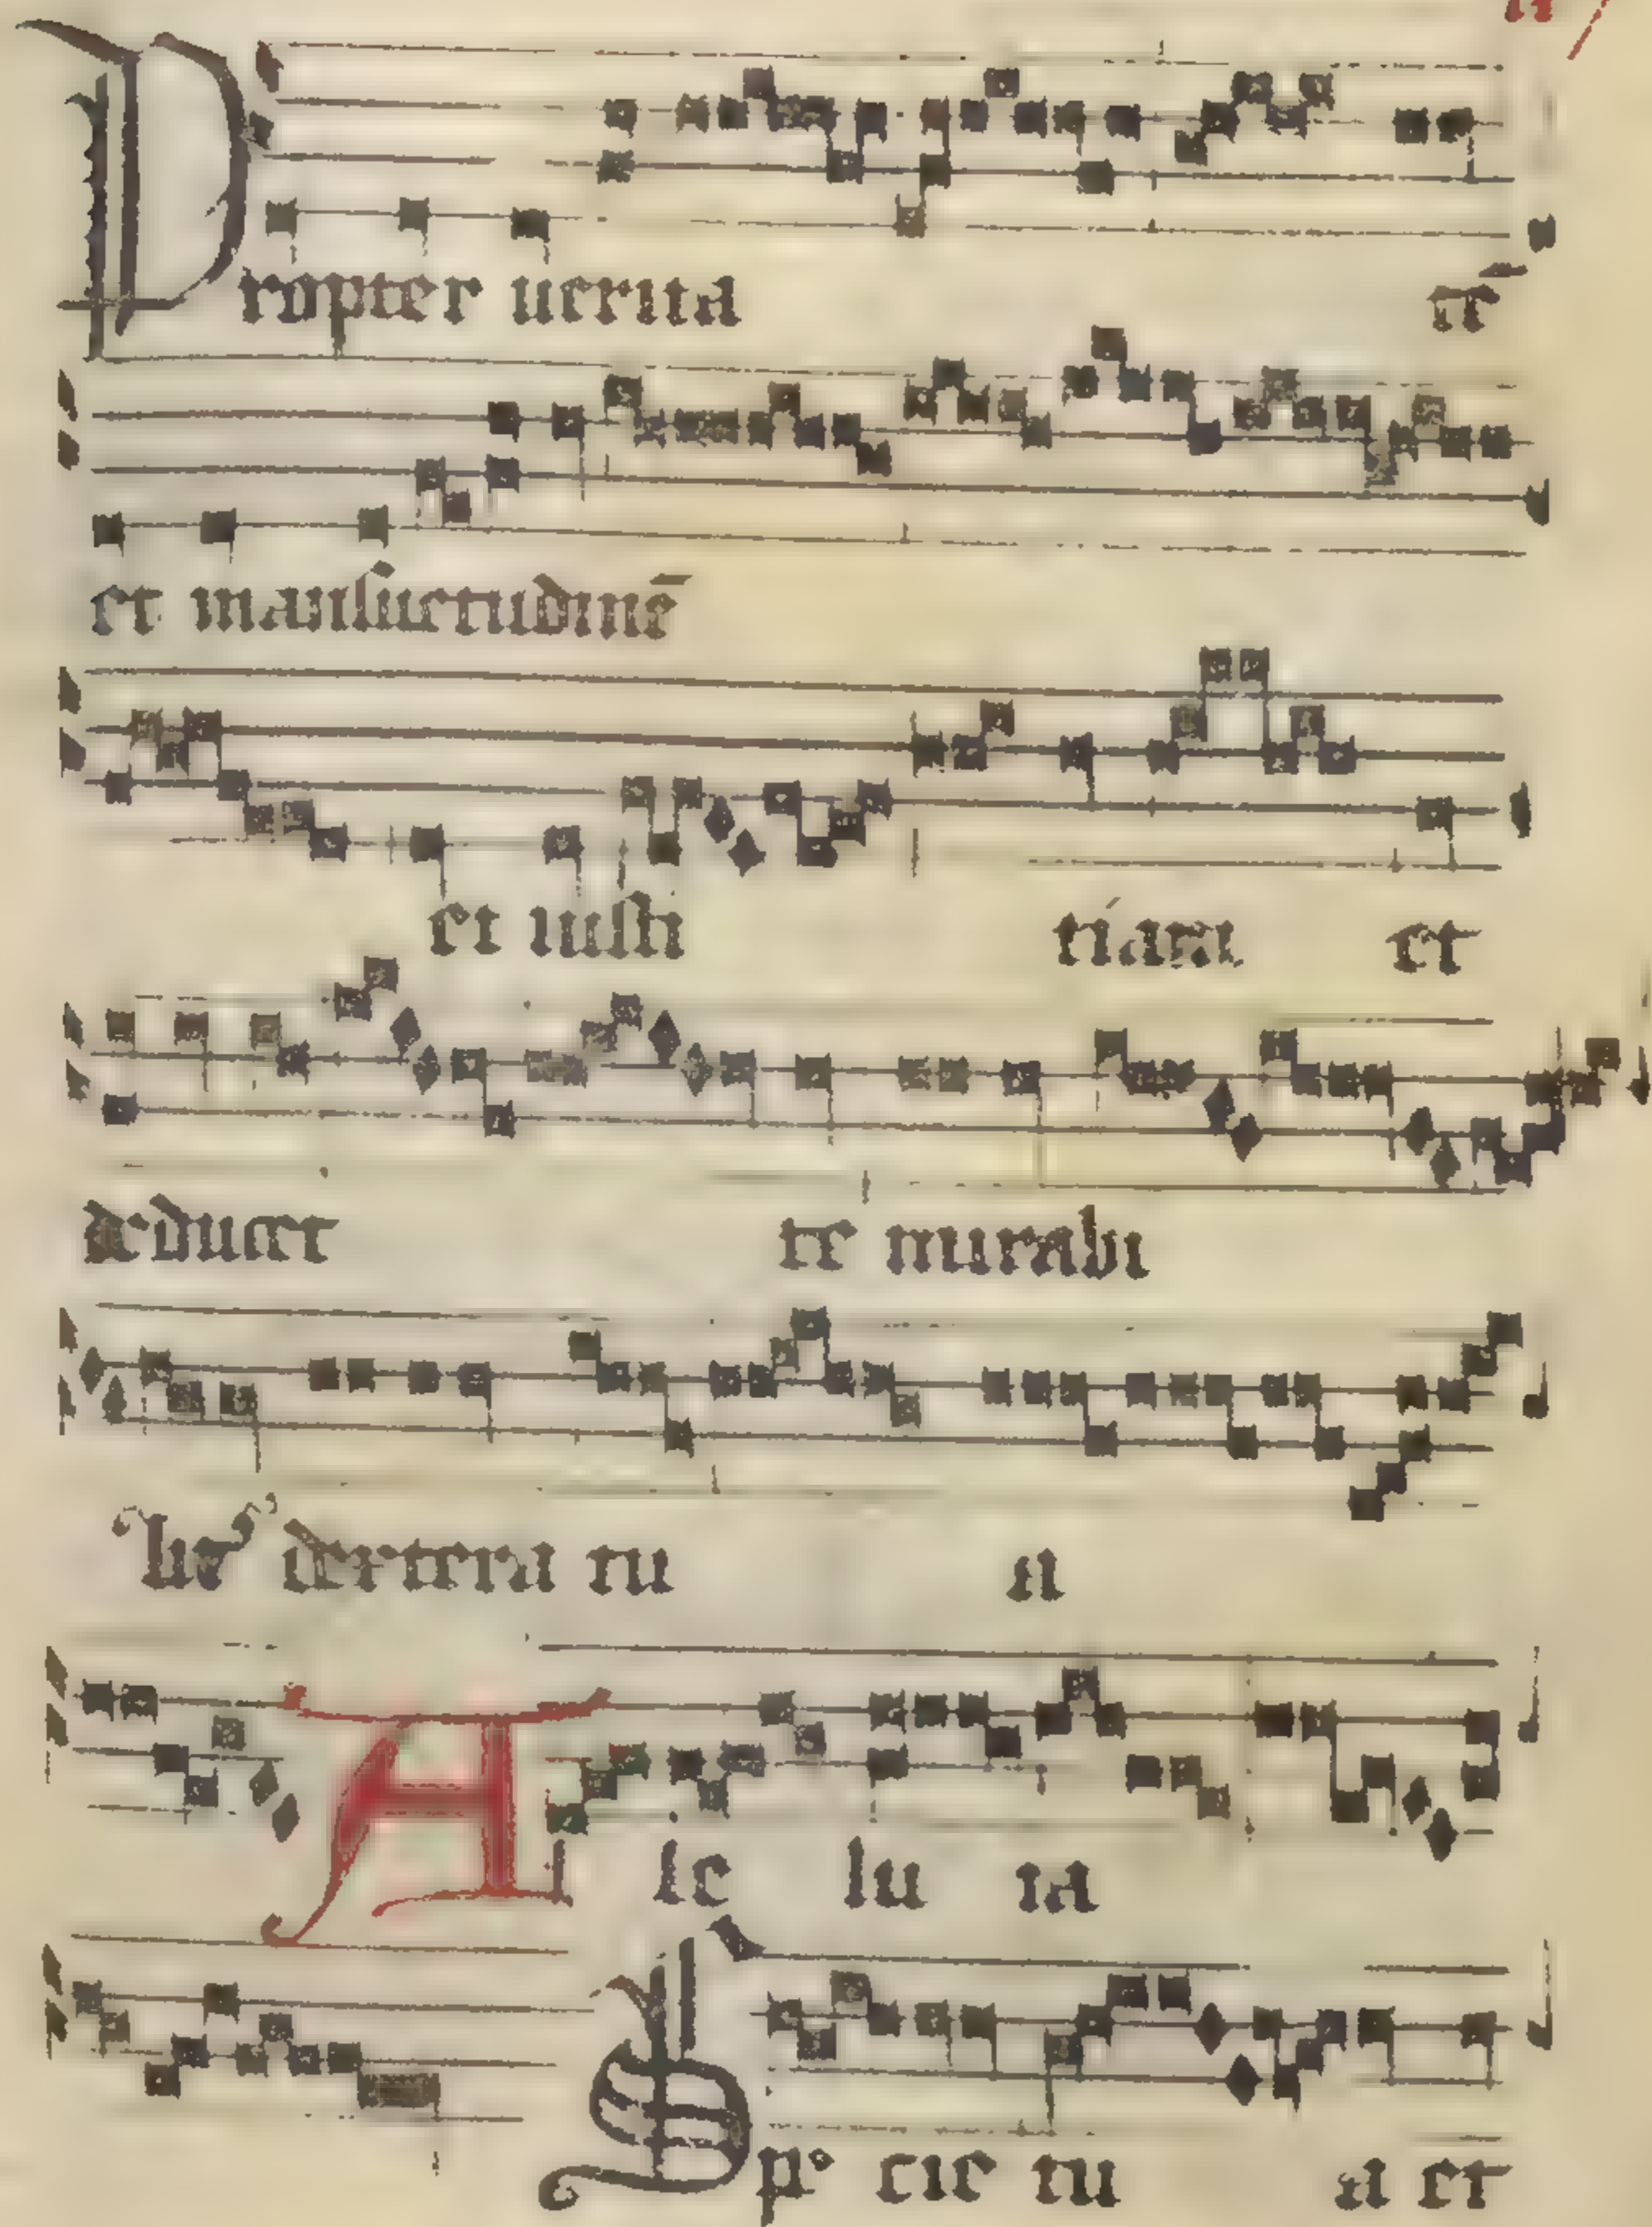 Propter uerita tē
et mansuetudinē
et iusti tiam et
deducet te mirabi
lit dextera tu a
A le lu ia
Spe cie tu a et